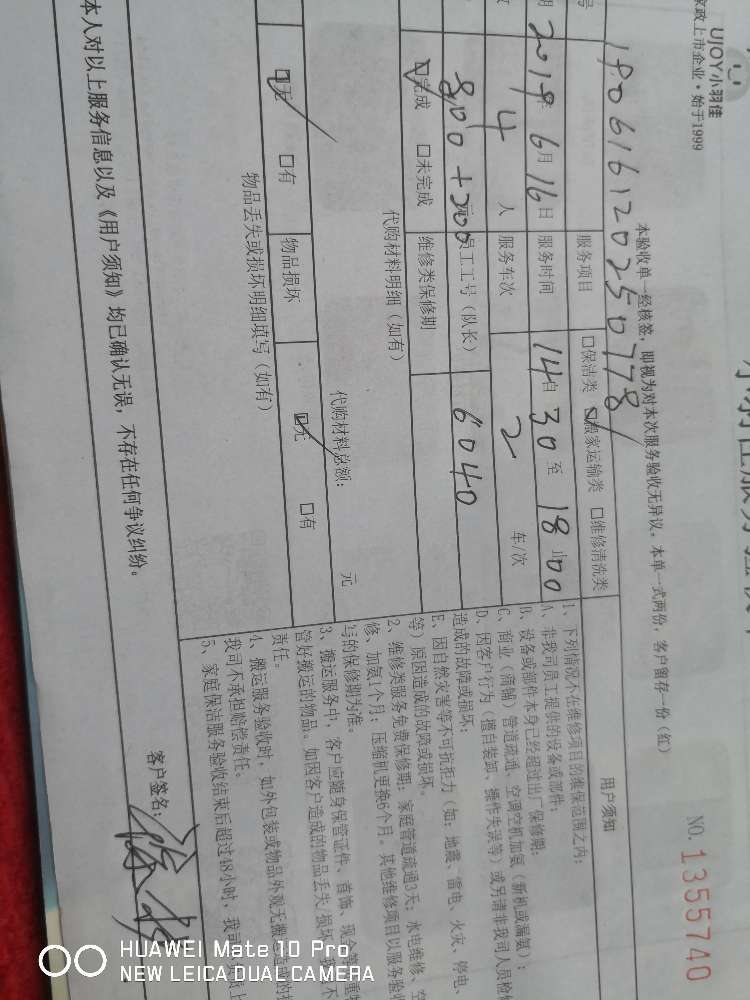 UJOY小羽佳
家政上市企业·始于1999
NO.1355740
本验收单一经核签，即视为对本次服务验收无异议。本单一式两份，客户留存一份（红）
号 190616120250778 服务项目 □保洁类 ☑搬家运输类 □维修清洗类
期 2019年6月16日 服务时间 自14 30至18 00
4 人 服务车次 2 车/次
800+200 元 员工工号（队长） 6040
☑完成 □未完成 维修类保修期
代购材料明细（如有）
代购材料总额： 元
☑无 □有 物品损坏 ☑无 □有
物品丢失或损坏明细填写（如有）
本人对以上服务信息以及《用户须知》均已确认无误，不存在任何争议纠纷。
用户须知
1、下列情况不在维修项目的维保范围之内：
A、非我司员工提供的设备或部件；
B、设备或部件本身已经超过出厂保修期；
C、商业（商铺）管道疏通、空调空机加氨（新机或漏氨）；
D、因客户行为（擅自装卸、操作失误等）或另请非我司人员检修
造成的故障或损坏；
E、因自然灾害等不可抗拒力（如：地震、雷电、火灾、停电、
等）原因造成的故障或损坏。
2、维修类服务免费保修期：家庭管道疏通3天，水电维修、空
修、加氨1个月；压缩机更换6个月。其他维修项目以服务验收
写的保修期为准。
3、搬运服务中，客户应随身保管证件、首饰、现金等
管好搬运的物品。如因客户造成的物品丢失
责任。
4、搬运服务验收时，如外包装或物品外观无搬运造成的
我司不承担赔偿责任。
5、家庭保洁服务验收结束后超过48小时，我司
客户签名：
HUAWEI Mate 10 Pro
NEW LEICA DUAL CAMERA